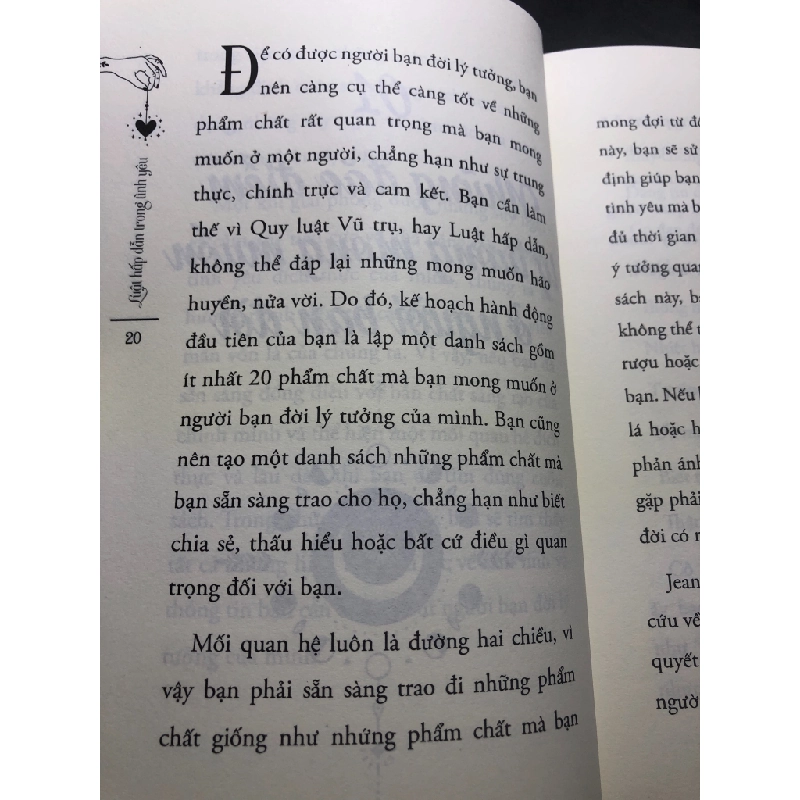 Để có được người bạn đời lý tưởng, bạn
nên càng cụ thể càng tốt về những
phẩm chất rất quan trọng mà bạn mong
muốn ở một người, chẳng hạn như sự trung
thực, chính trực và cam kết. Bạn cần làm
thế vì Quy luật Vũ trụ, hay Luật hấp dẫn,
không thể đáp lại những mong muốn hão
huyền, nửa vời. Do đó, kế hoạch hành động
đầu tiên của bạn là lập một danh sách gồm
ít nhất 20 phẩm chất mà bạn mong muốn ở
người bạn đời lý tưởng của mình. Bạn cũng
nên tạo một danh sách những phẩm chất mà
bạn sẵn sàng trao cho họ, chẳng hạn như biết
chia sẻ, thấu hiểu hoặc bất cứ điều gì quan
trọng đối với bạn.
Mối quan hệ luôn là đường hai chiều, vì
vậy bạn phải sẵn sàng trao đi những phẩm
chất giống như những phẩm chất mà bạn
Luật hấp dẫn trong tình yêu
20
mong đợi từ
này, bạn sẽ sử
định giúp bạn
tình yêu mà
đủ thời gian
ý tưởng quan
sách này,
không thể
rượu hoặc
bạn. Nếu
lá hoặc
phản ánh
gặp phải
đời có
Jean
cứu về
quyết
người